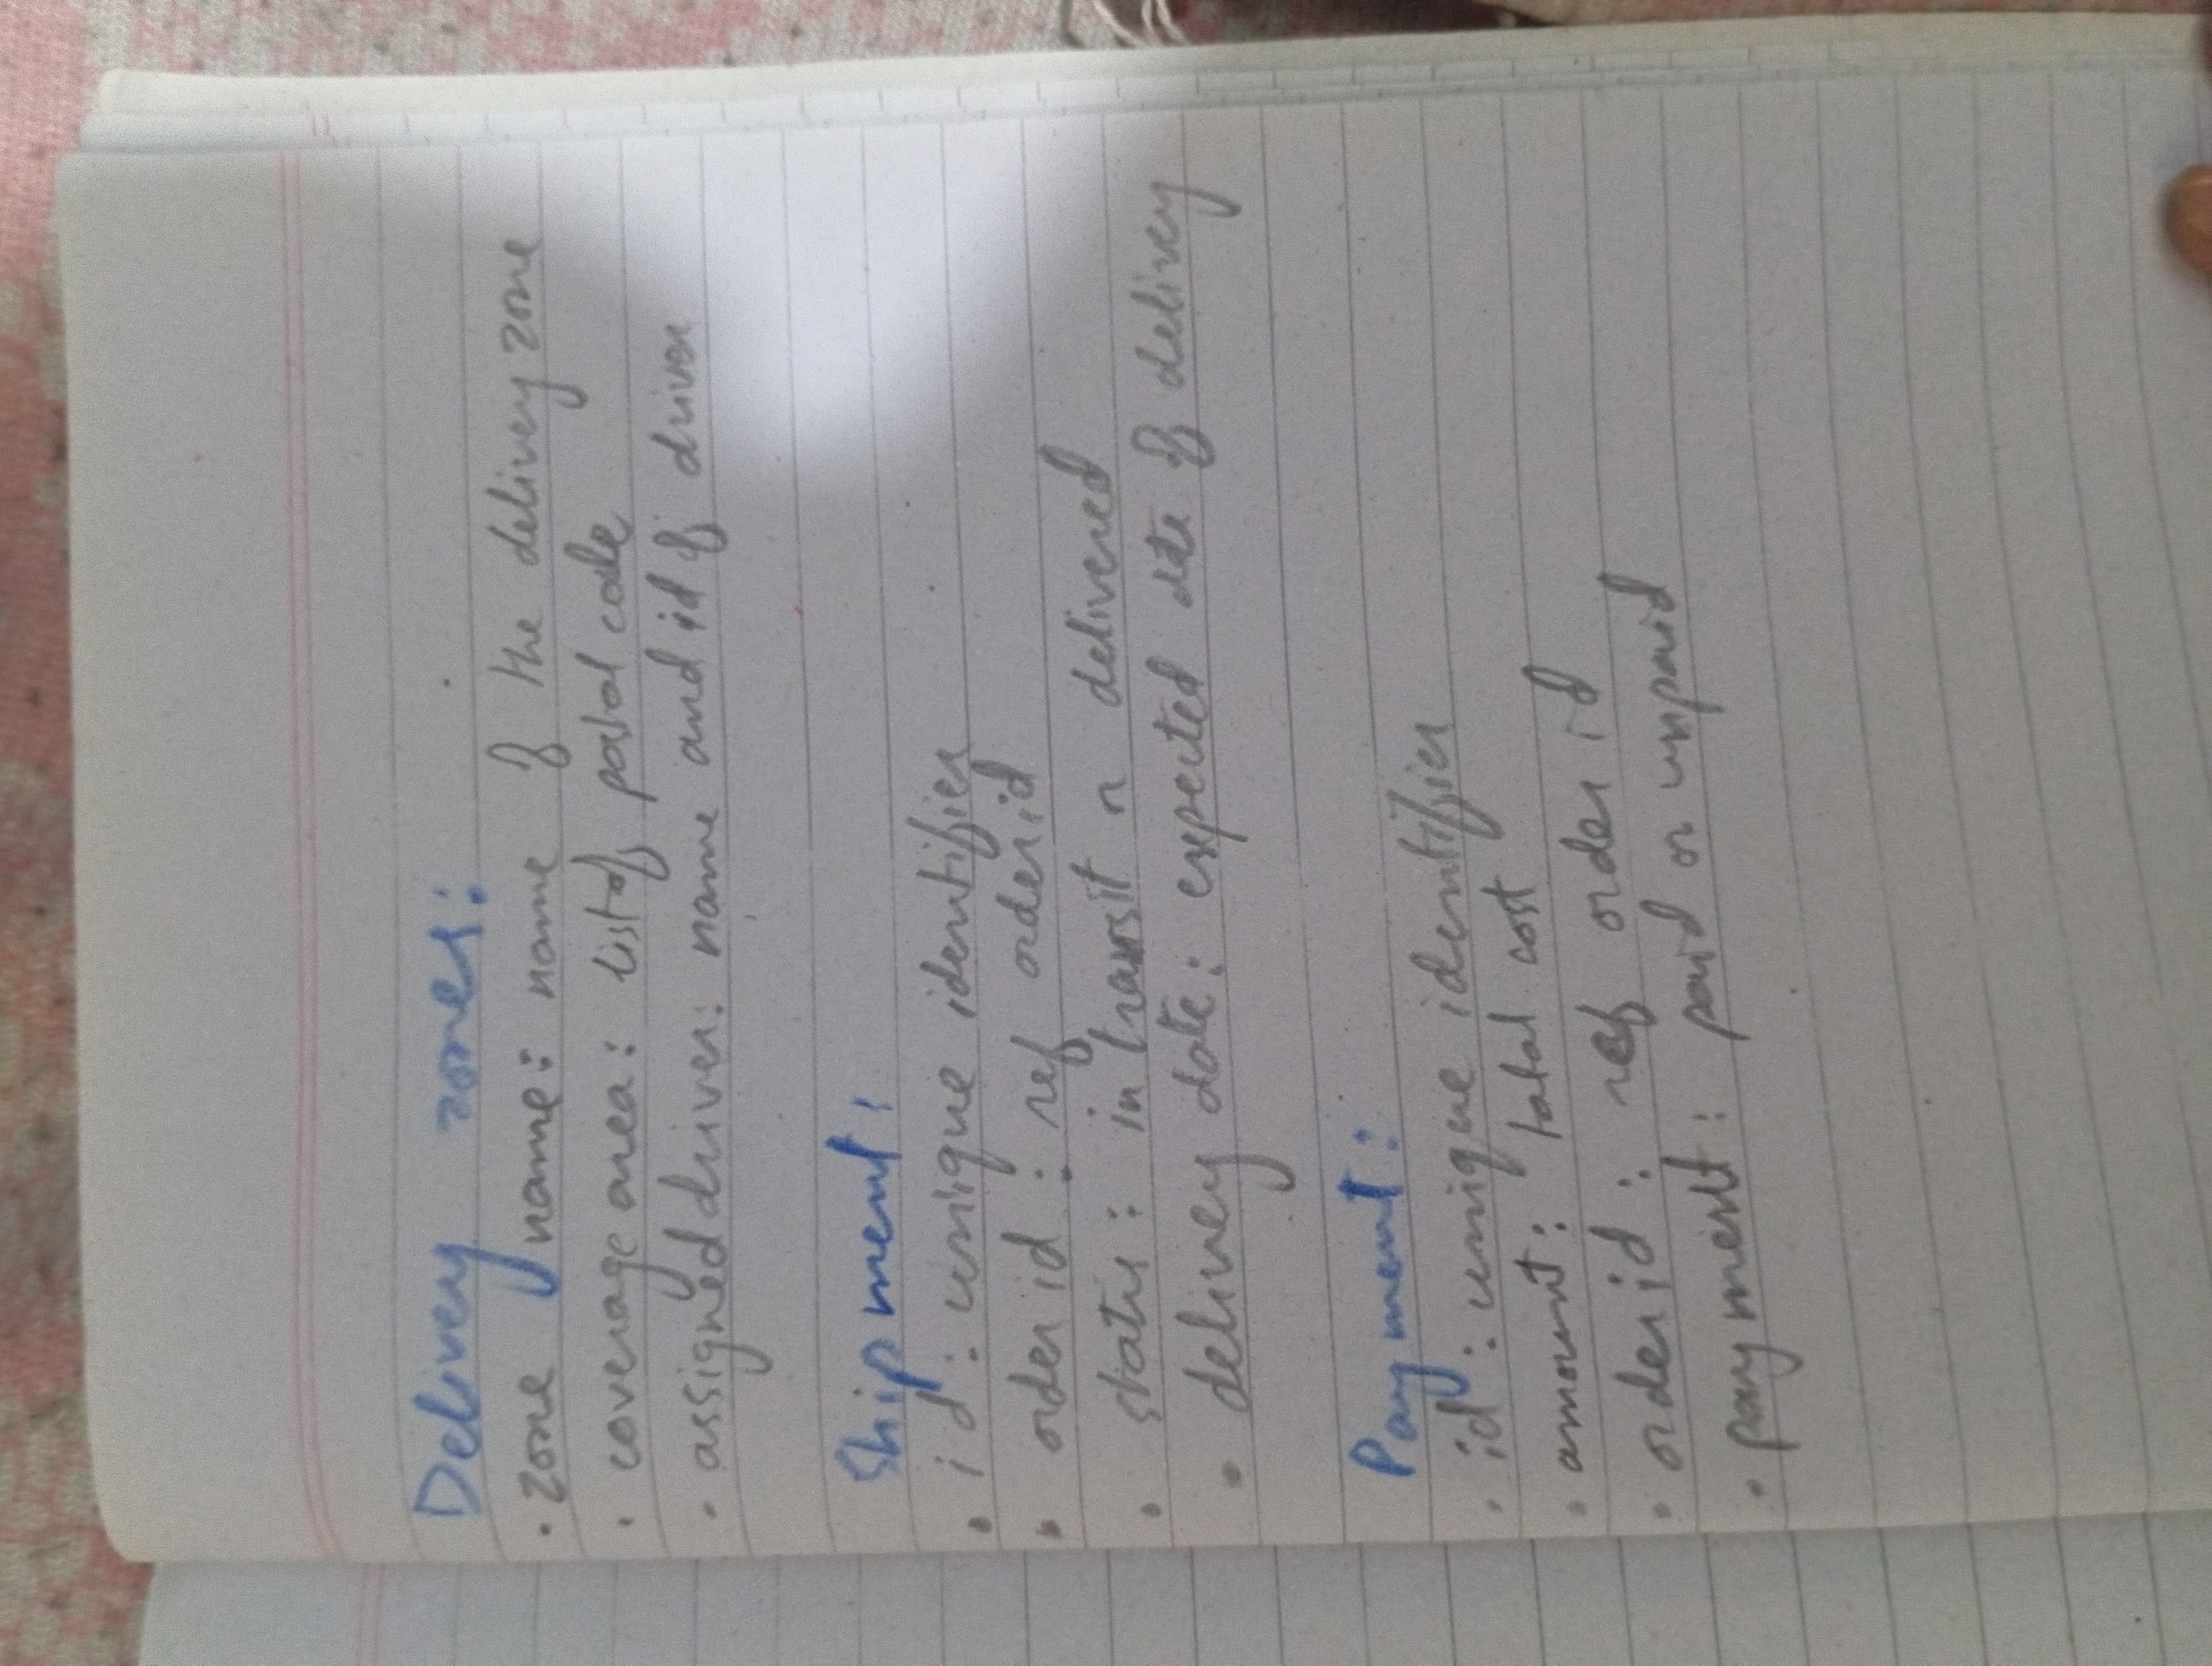 Delivery zones:
· zone name: name of the delivery zone
· coverage area: list of postal code
· assigned driver: name and id of driver
Shipment:
· id: unique identifier
· order id: ref order id
· status: in transit or delivered
· delivery date: expected date of delivery
Payment:
· id: unique identifier
· amount: total cost
· order id: ref order id
· payment: paid or unpaid